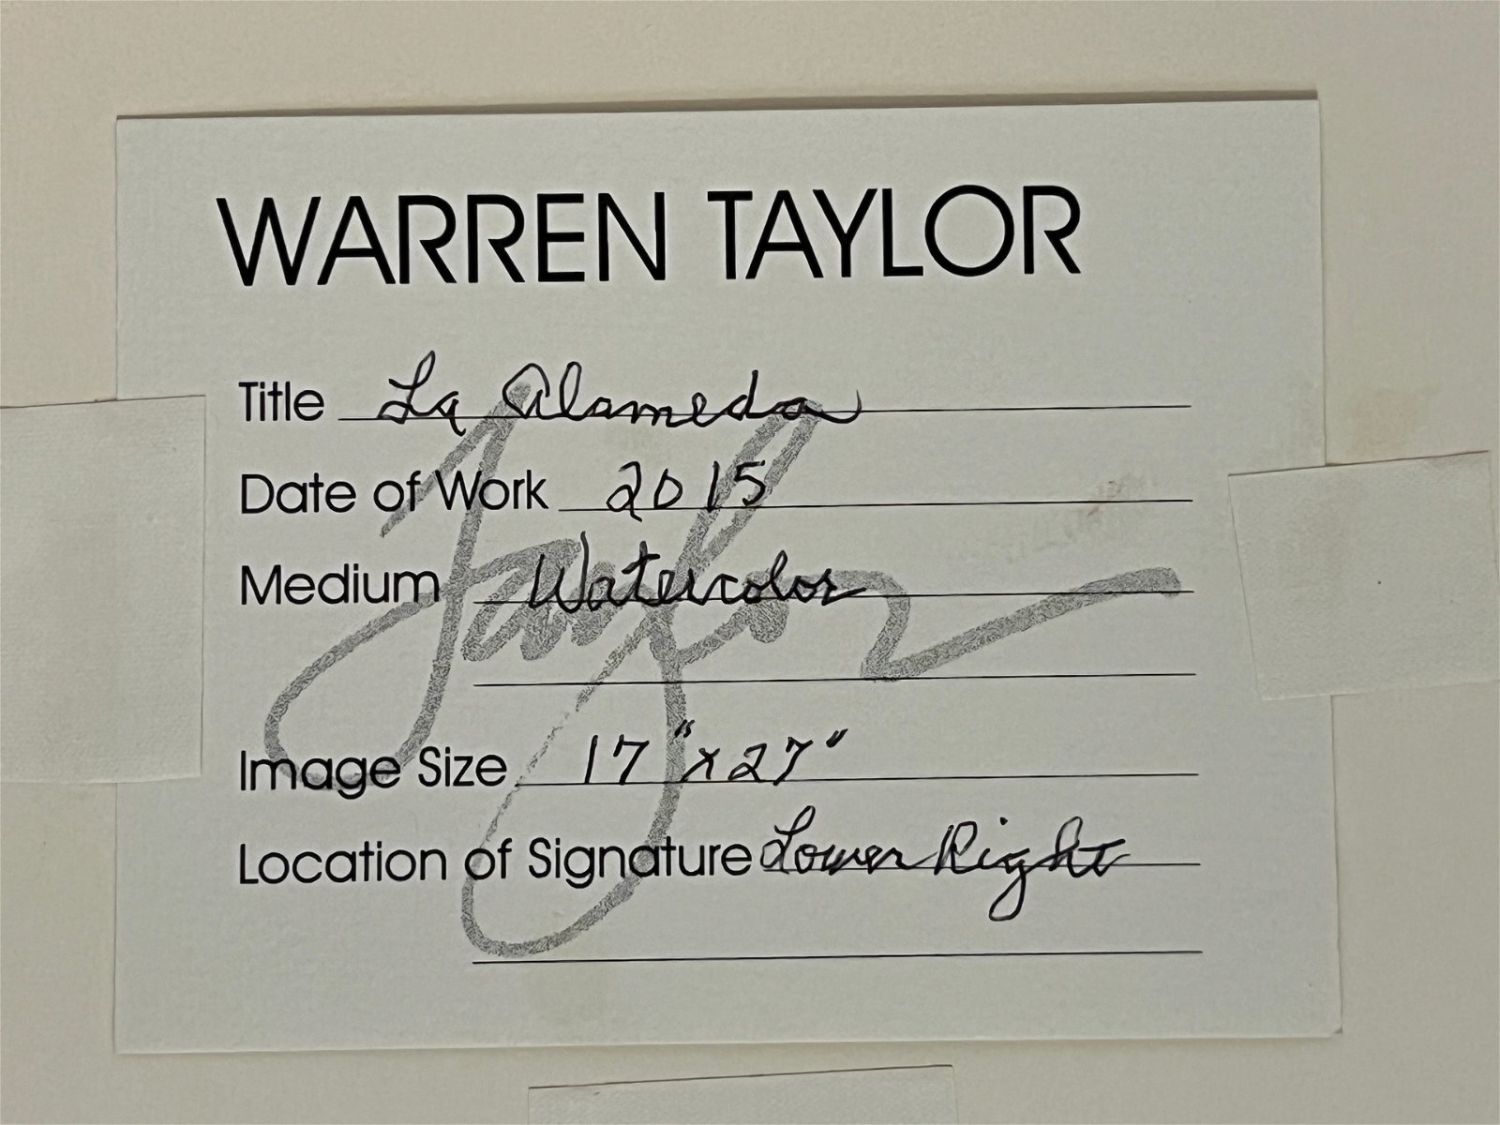 WARREN TAYLOR
Title La Alameda
Date of Work 2015
Medium Watercolor
Image Size 17" x 27"
Location of Signature Lower Right
Taylor